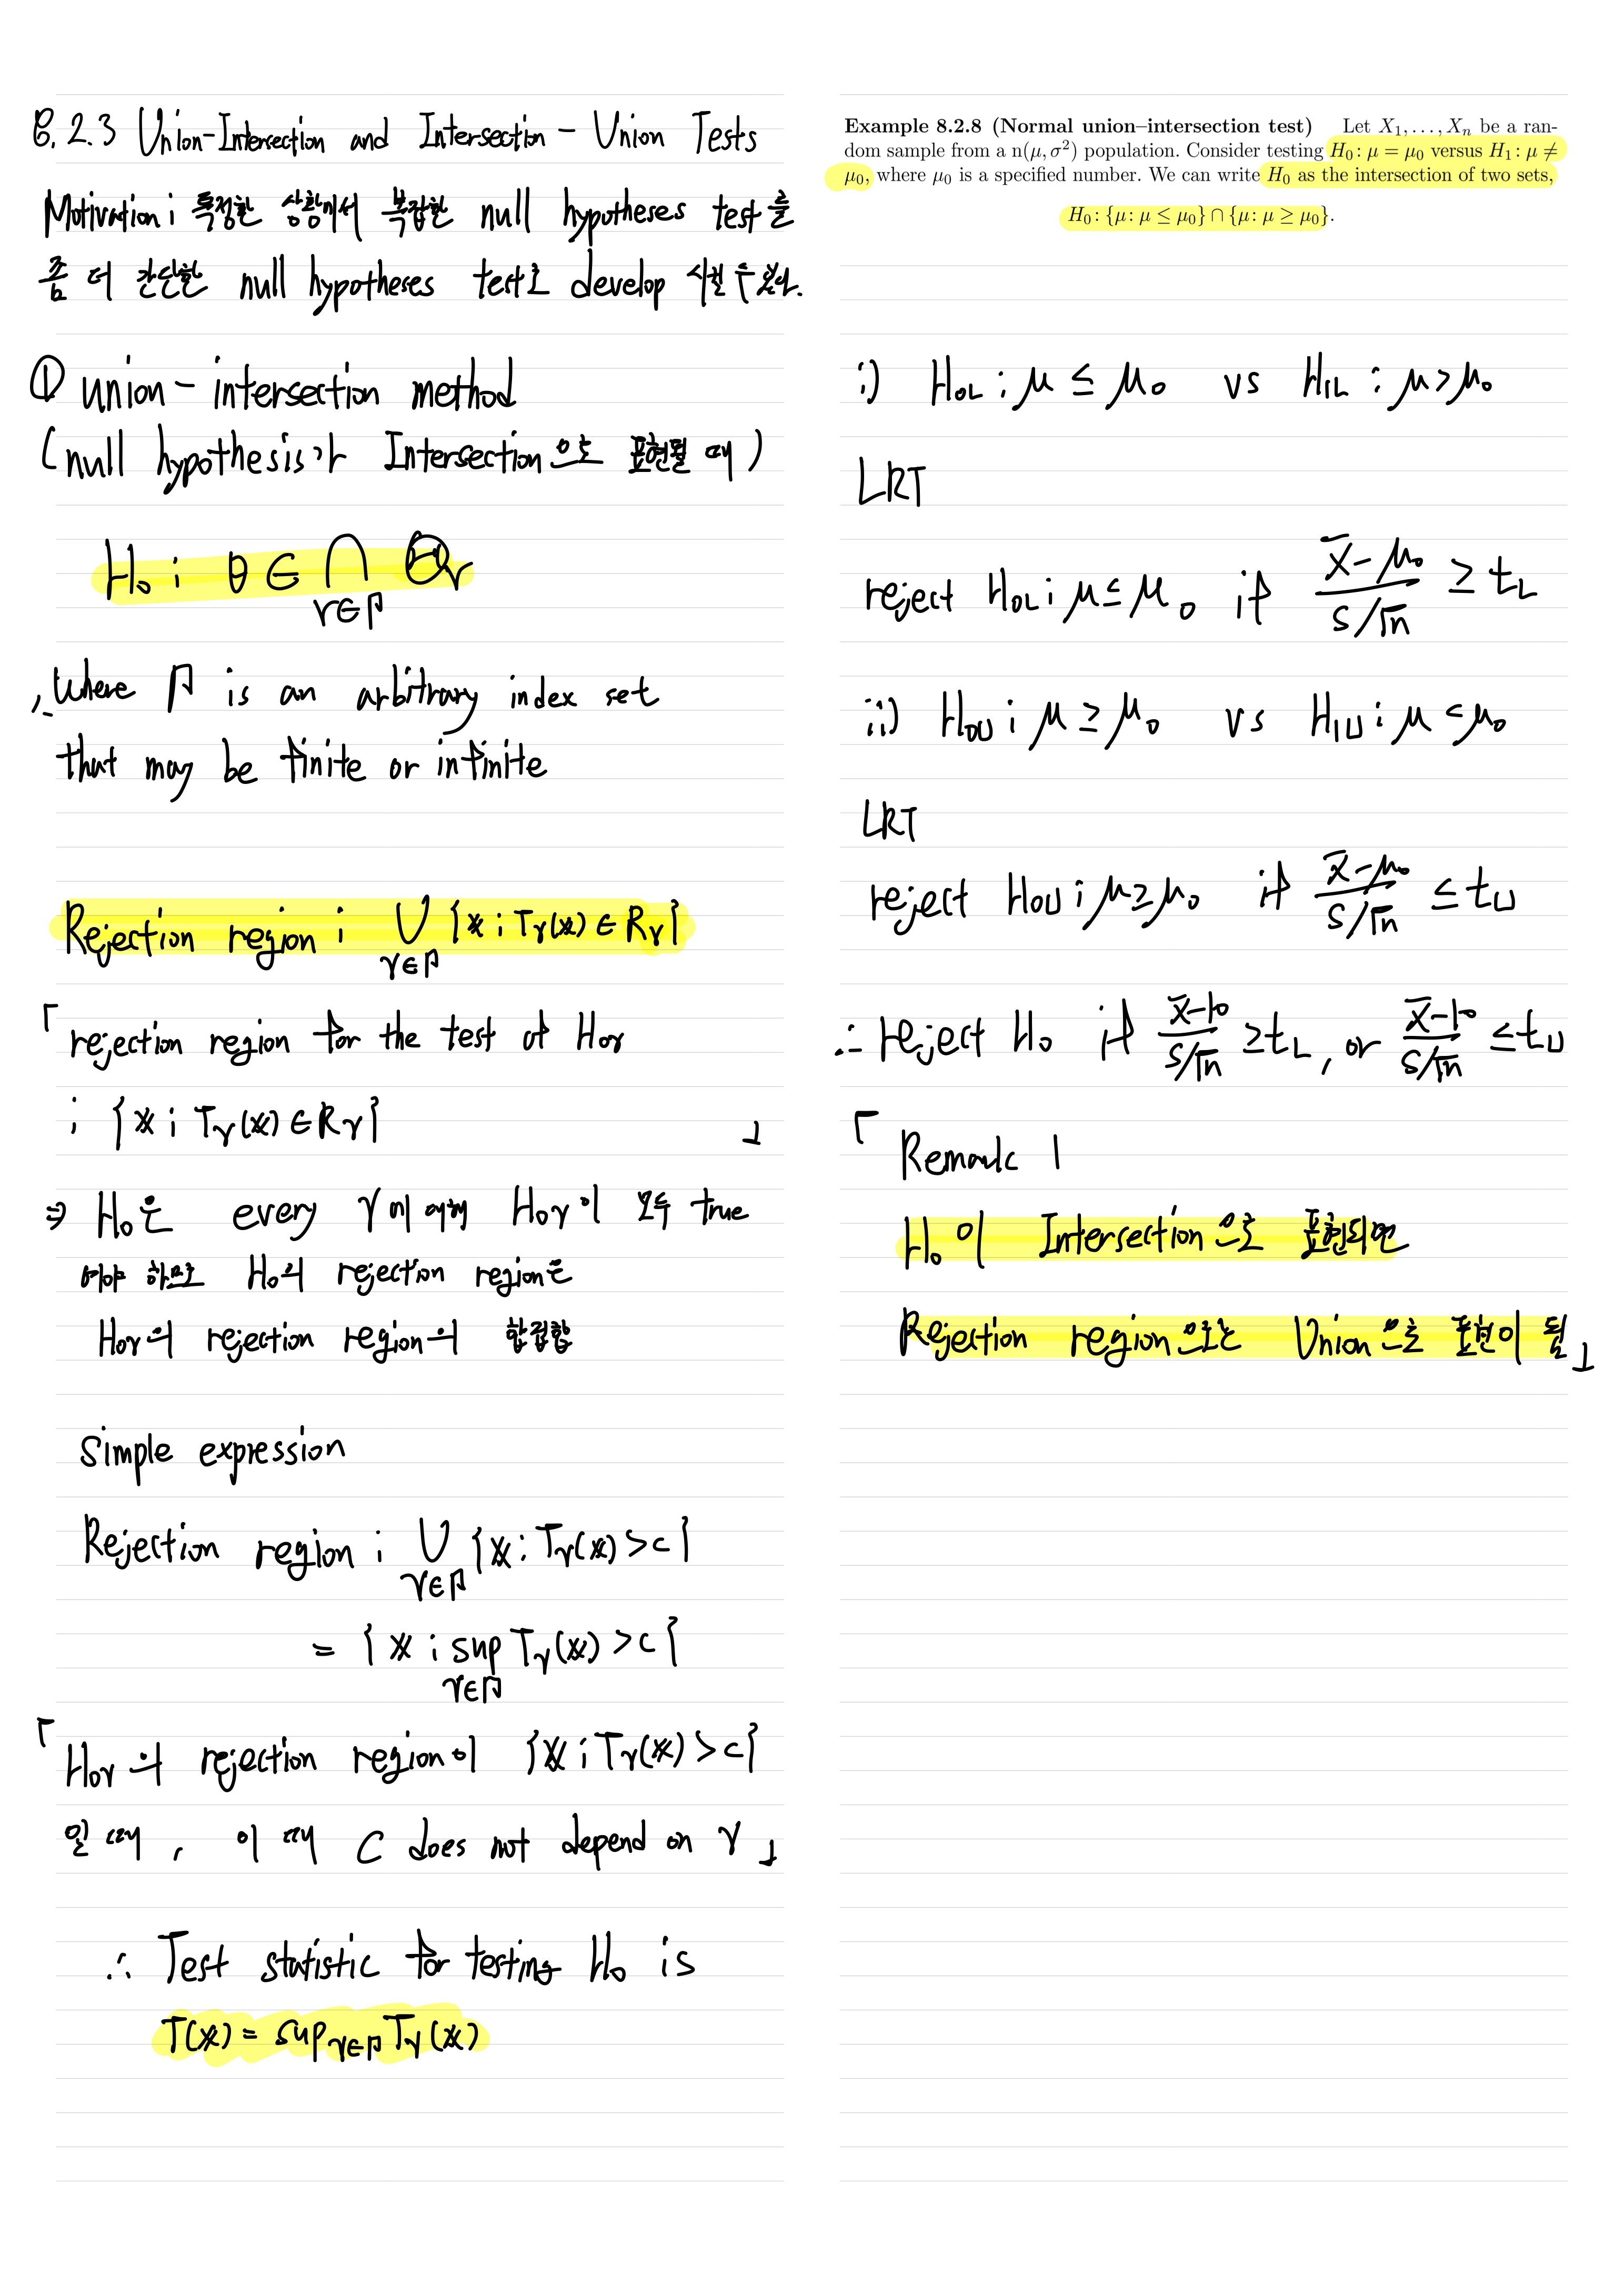 8.2.3 Union-Intersection and Intersection - Union Tests
Motivation : 특정한 상황에서 복잡한 null hypotheses test를
좀 더 간단한 null hypotheses test로 develop 시킬 수 있다.
① union - intersection method
(null hypothesis가 Intersection으로 표현될 때)
H₀ : θ ∈ ⋂ Θ_γ
γ∈Γ
, where Γ is an arbitrary index set
that may be finite or infinite
Rejection region : ⋃ {𝕩 : T_γ(𝕩) ∈ R_γ}
γ∈Γ
「 rejection region for the test of H₀γ
: {𝕩 : T_γ(𝕩) ∈ R_γ} 」
⇒ H₀는 every γ에 대해 H₀γ이 모두 true
여야 하므로 H₀의 rejection region은
H₀γ의 rejection region의 합집합
Simple expression
Rejection region : ⋃ {𝕩 : T_γ(𝕩) > c}
γ∈Γ
= {𝕩 : sup T_γ(𝕩) > c}
γ∈Γ
「 H₀γ의 rejection region이 {𝕩 : T_γ(𝕩) > c}
일 때, 이 때 C does not depend on γ 」
∴ Test statistic for testing H₀ is
T(𝕩) = sup_γ∈Γ T_γ(𝕩)
Example 8.2.8 (Normal union–intersection test) Let X₁, . . . , Xₙ be a ran-
dom sample from a n(μ, σ²) population. Consider testing H₀ : μ = μ₀ versus H₁ : μ ≠
μ₀, where μ₀ is a specified number. We can write H₀ as the intersection of two sets,
H₀ : {μ : μ ≤ μ₀} ∩ {μ : μ ≥ μ₀}.
i) H₀L : μ ≤ μ₀ vs H₁L : μ > μ₀
LRT
reject H₀L : μ ≤ μ₀ if (x̄ - μ₀)/(s/√n) ≥ t_L
ii) H₀U : μ ≥ μ₀ vs H₁U : μ < μ₀
LRT
reject H₀U : μ ≥ μ₀ if (x̄ - μ₀)/(s/√n) ≤ t_U
∴ reject H₀ if (x̄ - μ₀)/(s/√n) ≥ t_L, or (x̄ - μ₀)/(s/√n) ≤ t_U
「 Remark 1
H₀이 Intersection으로 표현되면
Rejection region으로는 Union으로 표현이 됨 」